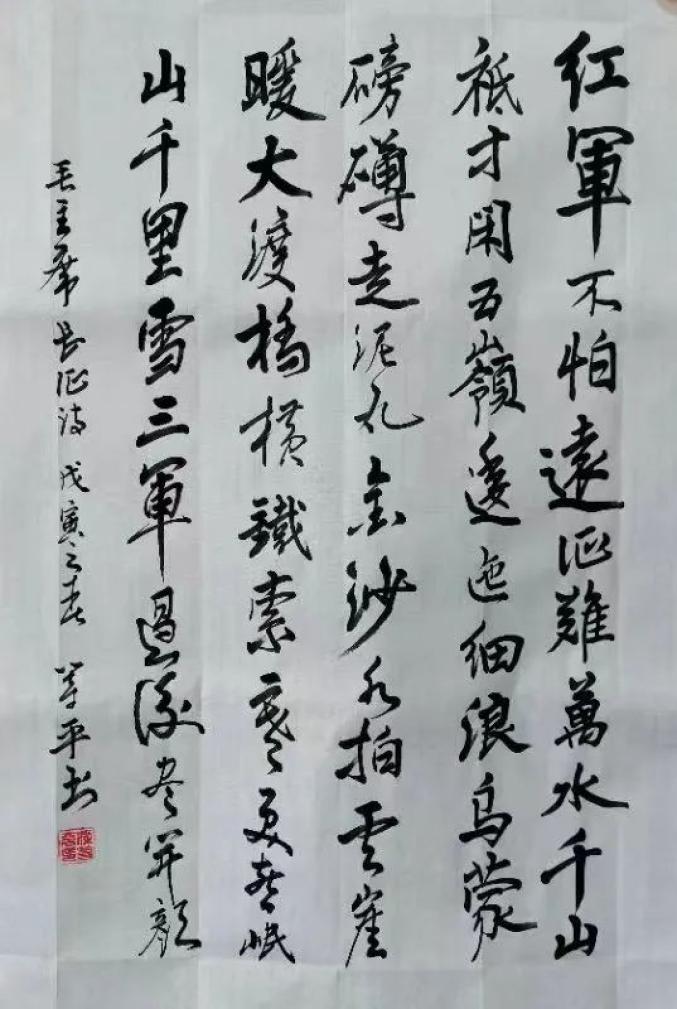 红軍不怕遠征難萬水千山
祇等閑五嶺逶迤细浪烏蒙
磅礴走泥丸金沙水拍雲崖
暖大渡橋横鐵索寒更喜岷
山千里雪三軍過後尽開顏
毛主席长征诗戊寅之春平书